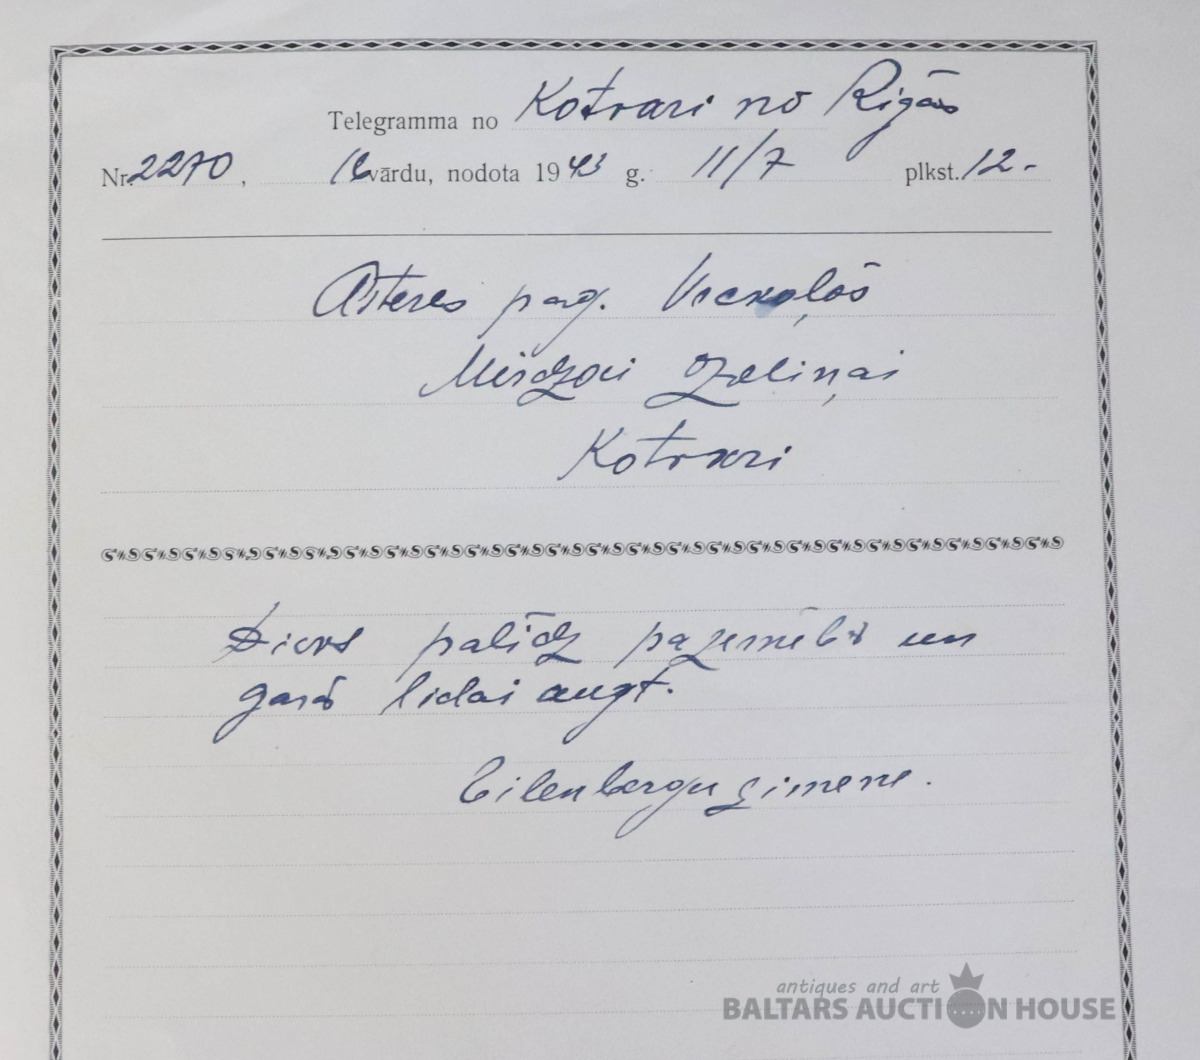 Telegramma no Kotrari no Rīgās
Nr. 2270, 16 vārdu, nodota 1943 g. 11/7 plkst. 12.-
Asteres pag.
Mirdzai Zeliņai
Kotrari
Dievs palīdz pazemībā un
garā lidai augt.
Eilenbergu ģimene.
antiques and art
BALTARS AUCTION HOUSE